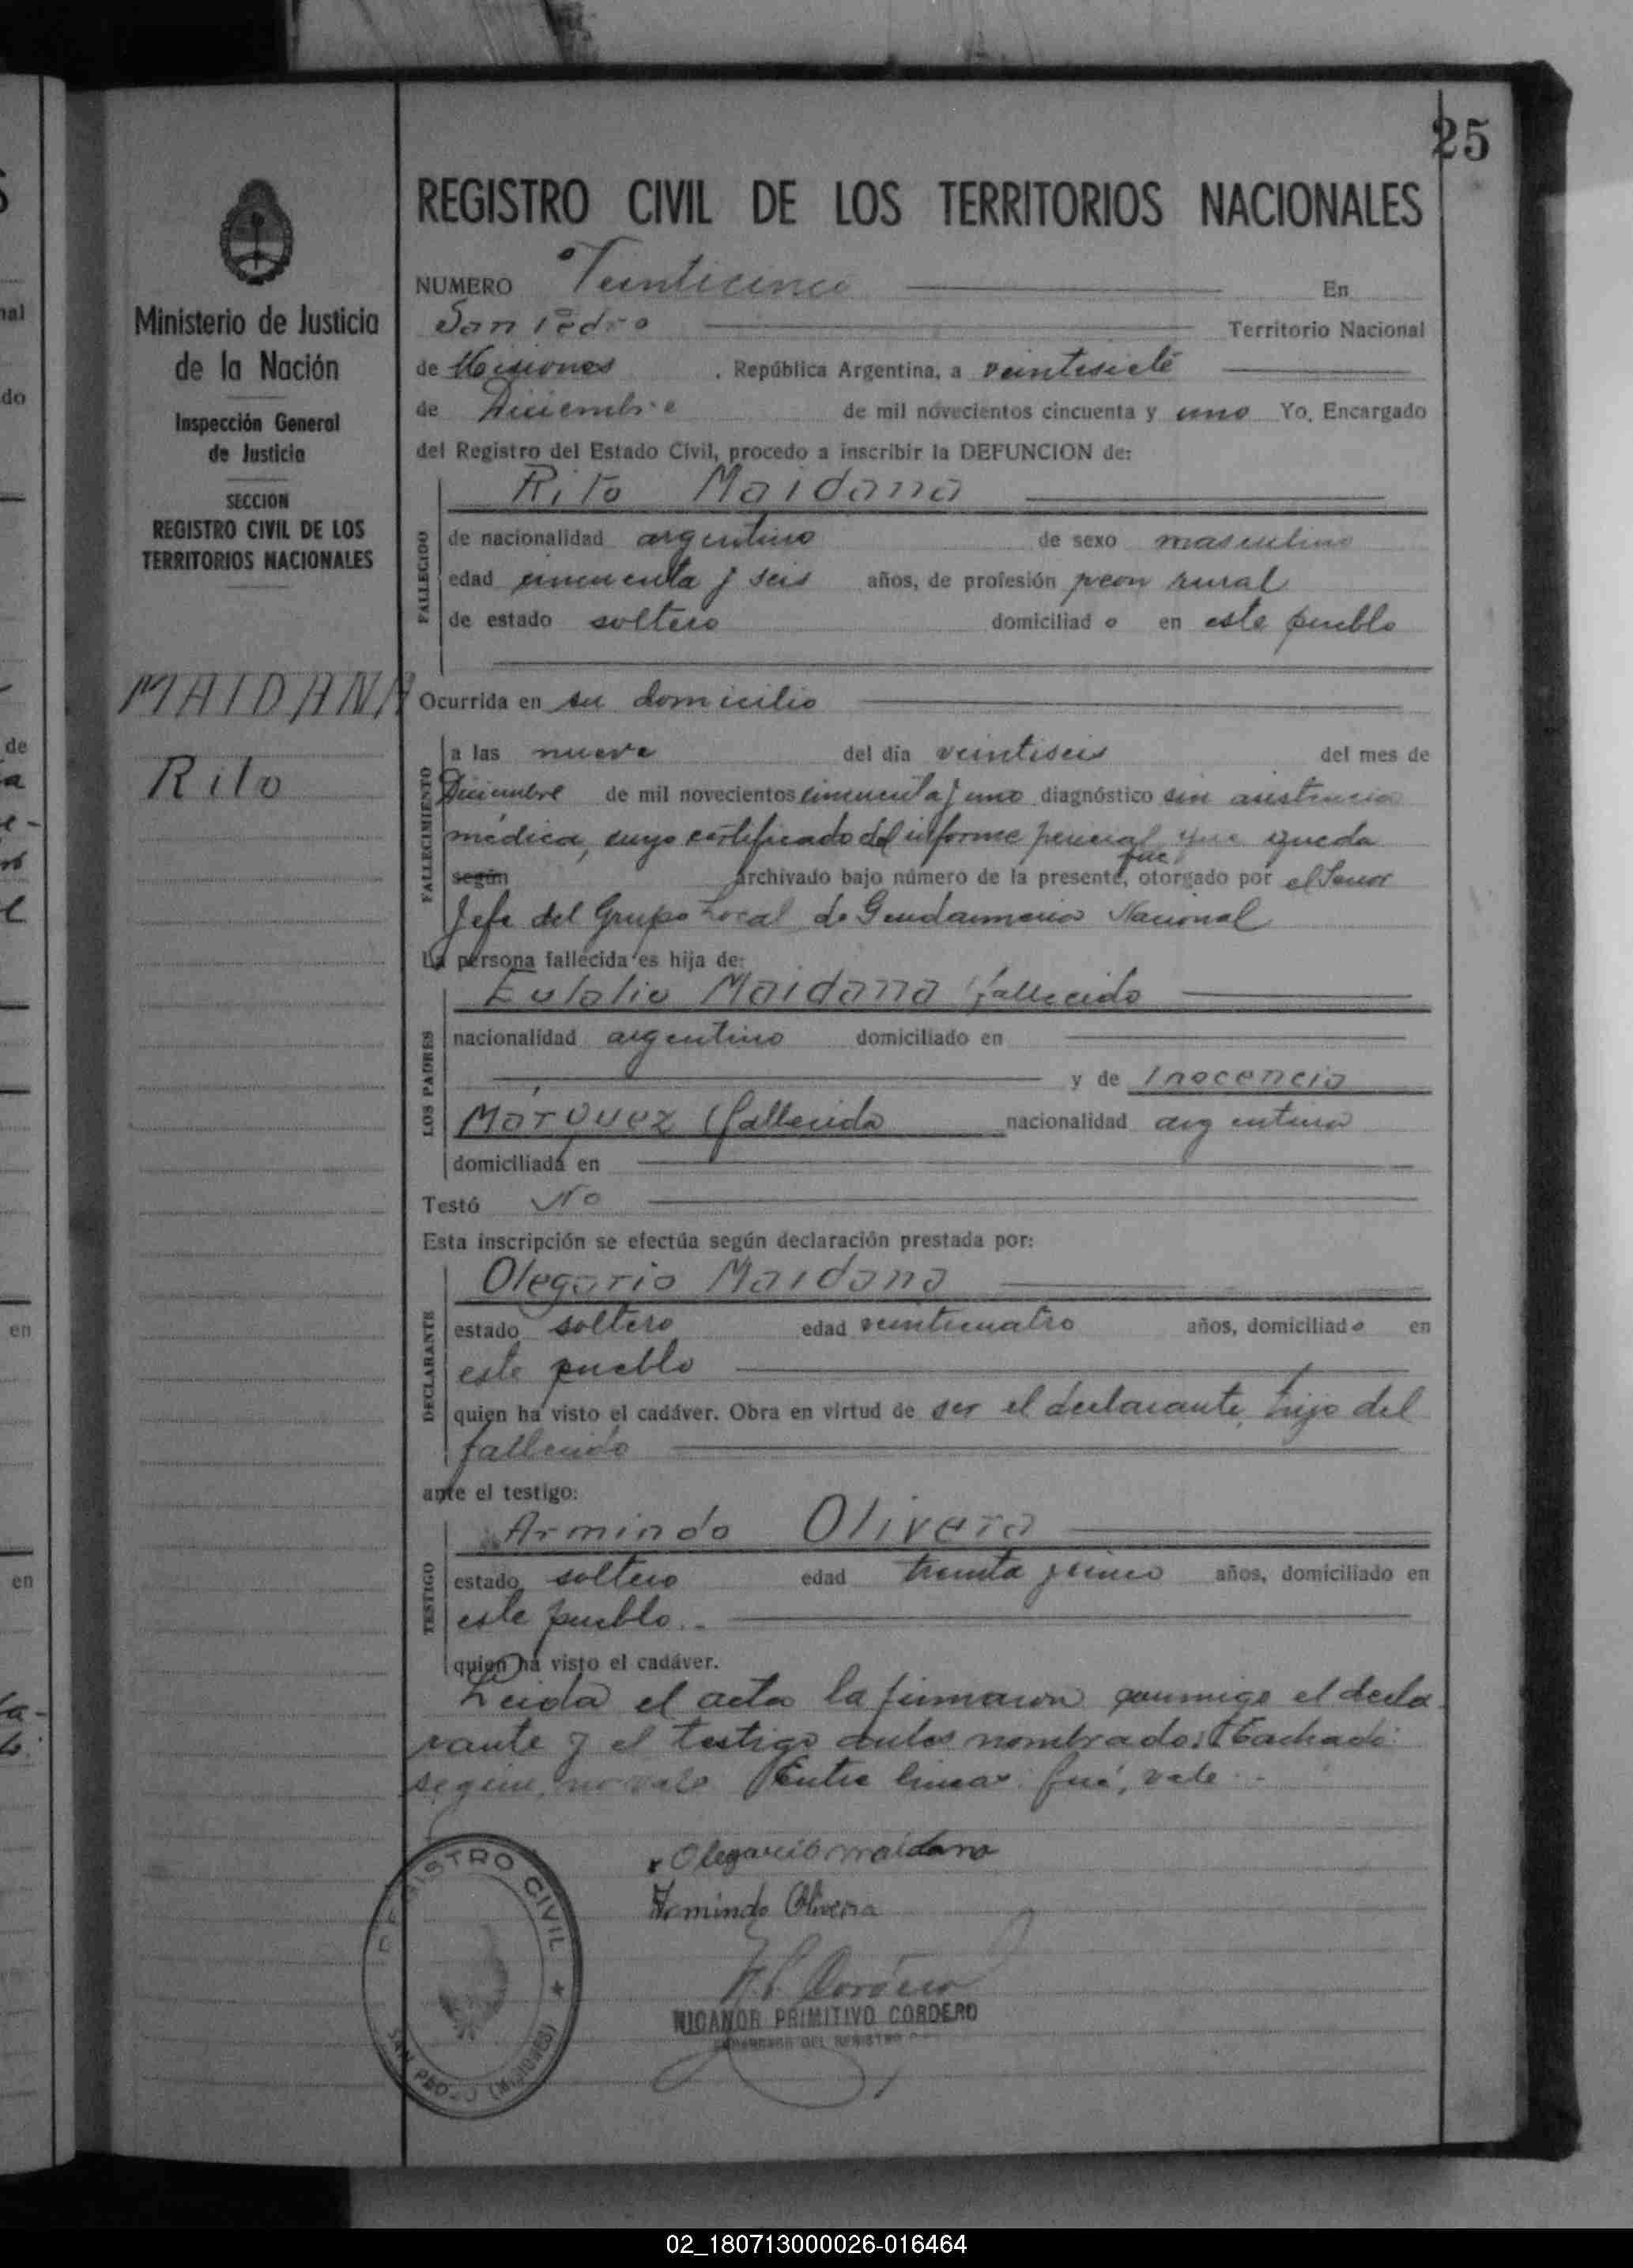 25
REGISTRO CIVIL DE LOS TERRITORIOS NACIONALES
Ministerio de Justicia
de la Nación
Inspección General
de Justicia
SECCION
REGISTRO CIVIL DE LOS
TERRITORIOS NACIONALES
MAIDANA
Rito
NUMERO Veinticinco En
San Pedro Territorio Nacional
de Misiones . República Argentina, a veintisiete
de Diciembre de mil novecientos cincuenta y uno Yo, Encargado
del Registro del Estado Civil, procedo a inscribir la DEFUNCION de:
FALLECIDO
Rito Maidana
de nacionalidad argentino de sexo masculino
edad cincuenta y seis años, de profesión peon rural
de estado soltero domiciliad o en este pueblo
Ocurrida en su domicilio
FALLECIMIENTO
a las nueve del día veintiseis del mes de
Diciembre de mil novecientos cincuenta y uno diagnóstico sin asistencia
médica, cuyo certificado del informe pericial que queda
fué
según archivado bajo número de la presente, otorgado por el Señor
Jefe del Grupo Local de Gendarmeria Nacional
La persona fallecida es hija de:
LOS PADRES
Eulalio Maidana (fallecido
nacionalidad argentino domiciliado en
y de Inocencia
Márquez (fallecida nacionalidad argentina
domiciliada en
Testó No
Esta inscripción se efectúa según declaración prestada por:
DECLARANTE
Olegario Maidana
estado soltero edad veinticuatro años, domiciliado en
este pueblo
quien ha visto el cadáver. Obra en virtud de ser el declarante, hijo del
fallecido
ante el testigo:
TESTIGO
Armindo Olivera
estado soltero edad treinta y cinco años, domiciliado en
este pueblo..-
quien ha visto el cadáver.
Leida el acta la firmaron conmigo el decla-
rante y el testigo antes nombrado: Tachado:
según, no vale Entre lineas: fué, vale.-
Olegario maidana
Armindo Olivera
N.P. Cordero
NICANOR PRIMITIVO CORDERO
ENCARGADO DEL REGISTRO
REGISTRO CIVIL
SAN PEDRO (MISIONES)
nal
do
de
a
en
en
02_180713000026-016464